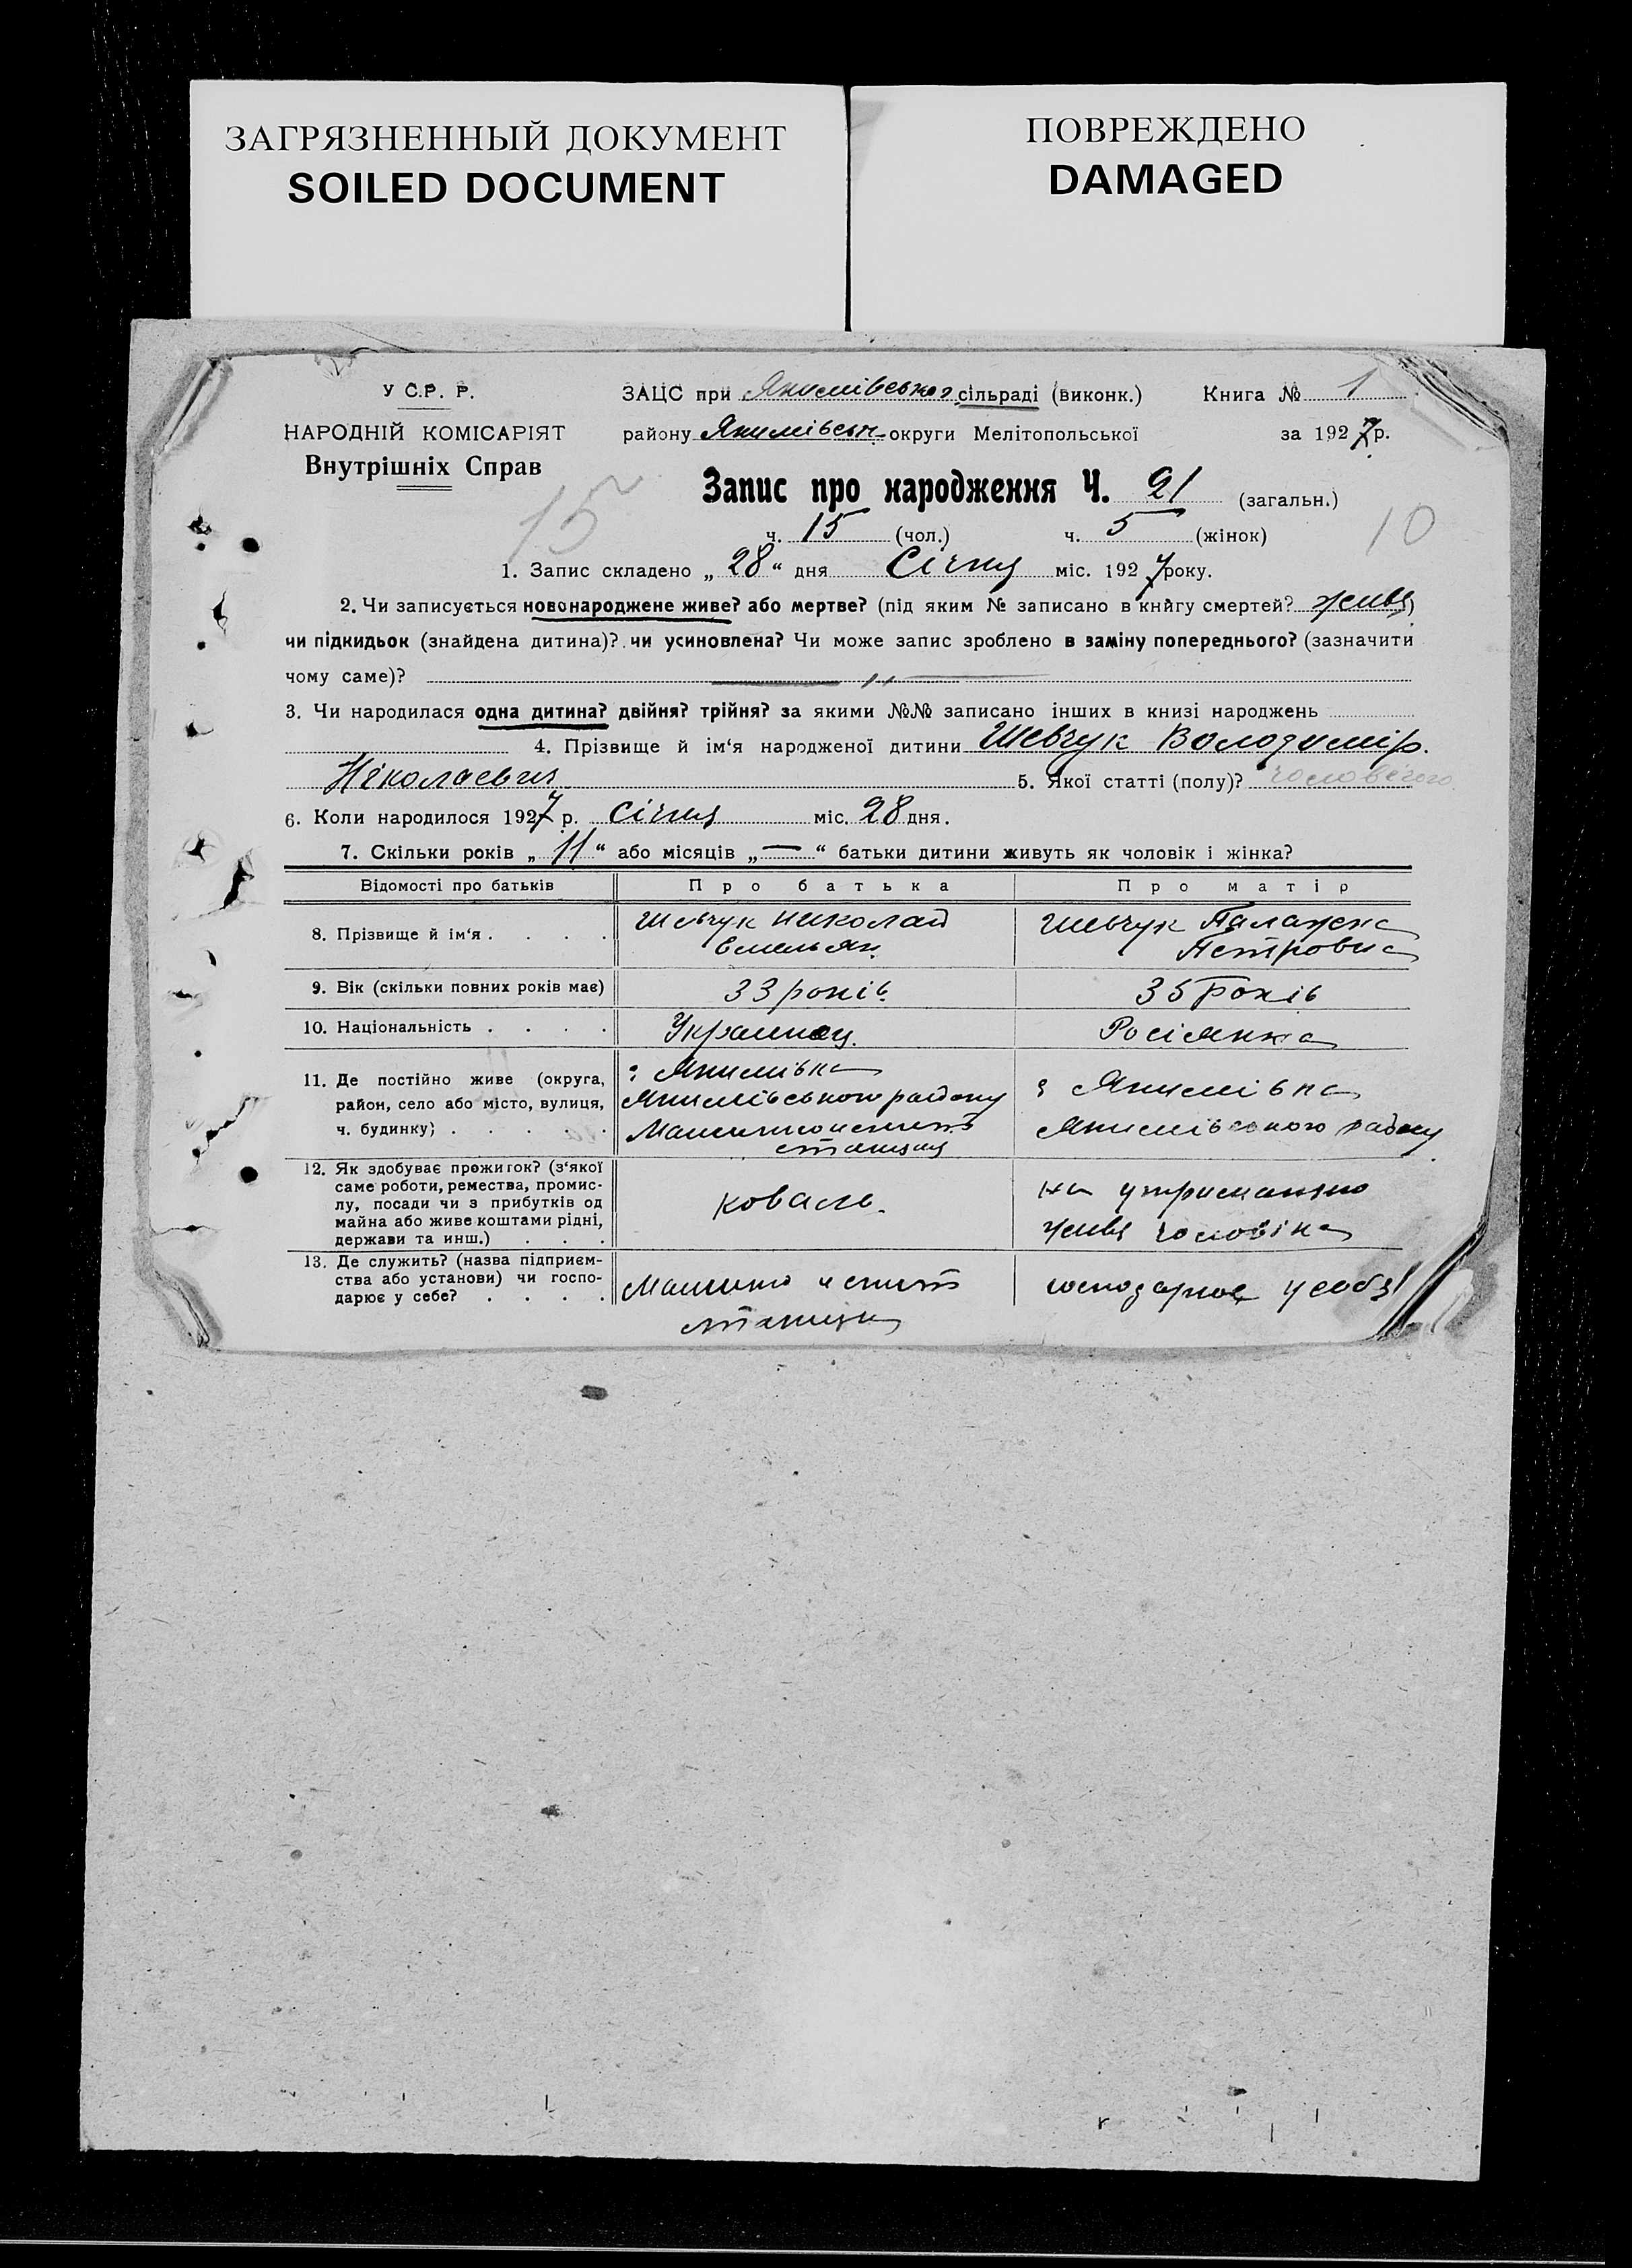 ЗАГРЯЗНЕННЫЙ ДОКУМЕНТ
SOILED DOCUMENT
ПОВРЕЖДЕНО
DAMAGED
У С.Р. Р.
НАРОДНІЙ КОМІСАРІЯТ
Внутрішніх Справ
ЗАЦС при Якимівської сільраді (виконк.) Книга № 1
району Якимівськ округи Мелітопольської за 1927 р.
Запис про народження Ч. 21 (загальн.)
15
ч. 15 (чол.) ч. 5 (жінок)
10
1. Запис складено „ 28 “ дня Січня міс. 1927 року.
2. Чи записується новонароджене живе? або мертве? (під яким № записано в книгу смертей? живе)
чи підкидьок (знайдена дитина)? чи усиновлена? Чи може запис зроблено в заміну попереднього? (зазначити
чому саме)? — „ —
3. Чи народилася одна дитина? двійня? трійня? за якими №№ записано інших в книзі народжень
4. Прізвище й ім‘я народженої дитини Шевчук Володимір
Ніколаевич 5. Якої статті (полу)? чоловічого
6. Коли народилося 1927 р. січня міс. 28 дня.
7. Скільки років „ 11 “ або місяців „ — “ батьки дитини живуть як чоловік і жінка?
Відомості про батьків Про батька Про матір
8. Прізвище й ім‘я . . . . Шевчук Николай Шевчук Палажка
Емельян. Петровна
9. Вік (скільки повних років має) 33 років 35 років
10. Національність . . . . Украинец Росіянка
11. Де постійно живе (округа,
район, село або місто, вулиця,
ч. будинку) . . . . .
с Якимівка
Якимівського району
станция
с Якимівка
Якимівського району
12. Як здобуває прожиток? (з‘якої
саме роботи, ремества, промис-
лу, посади чи з прибутків од
майна або живе коштами рідні,
держави та инш.) . . .
коваль
на утриманню
живе чоловіка
13. Де служить? (назва підприєм-
ства або установи) чи госпо-
дарює у себе? . . . .
станция
господарює у собе